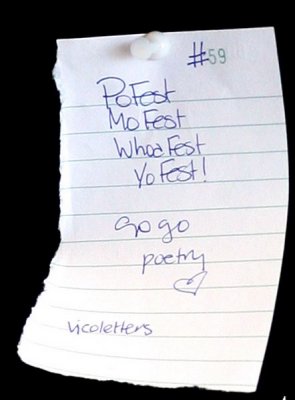 #59
PoFest
MoFest
WhoaFest
YoFest!
So go
poetry
vicoletters